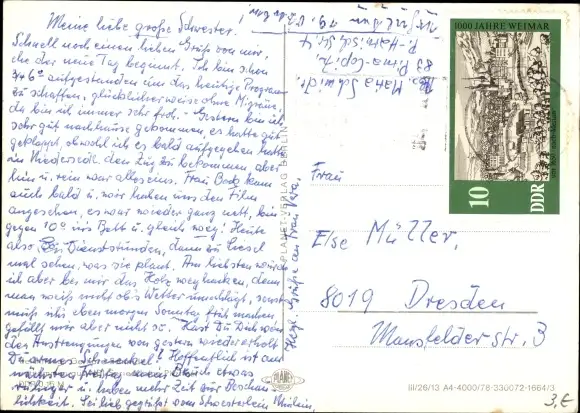 Meine liebe große Schwester.
Schnell noch einen lieben Gruß von mir,
ehe der neue Tag beginnt. Ich bin schon
3/4 6° aufgestanden um das heutige Programm
zu schaffen, glücklicherweise ohne Migräne
da bin ich immer sehr froh. - Gestern bin ich
sehr gut nachhause gekommen, es hatte gut
geklappt, obwohl ich es bald aufgegeben hatte
in Niedersedl. den Zug zu bekommen aber
hin u. rein war alles eins. Frau Bock kam
auch bald u. wir haben uns den Film
angesehen, es war wieder ganz nett, bin
gegen 10° ins Bett u. gleich weg! Heute
also Dienststunden, dann zu Liesel
mal sehen, was sie plant. Am liebsten würde
ich aber bei mir das Holz weghacken, denn
man weiß nicht ob's Wetter umschlägt, sonst
muß ich's eben morgen Sonntag früh machen
gefällt mir aber nicht so. Hast Du Dich von
den Anstrengungen von gestern wieder erholt
Du armes Schneckel! Hoffentlich ist am
nächsten Freitag mein Besuch etwas
ruhiger u. haben mehr Zeit zur Beschau-
lichkeit. Sei lieb gegrüßt vom Schwesterlein
Herzl. Grüße an Frau
PLANET-VERLAG BERLIN
PLANET
19.
83 Pirna-Cop.
1000 JAHRE WEIMAR
10
DDR
Frau
Else Müller,
8019 Dresden
Mansfelder str. 3
III/26/13 A4-4000/76-330072-1664/3
3,€